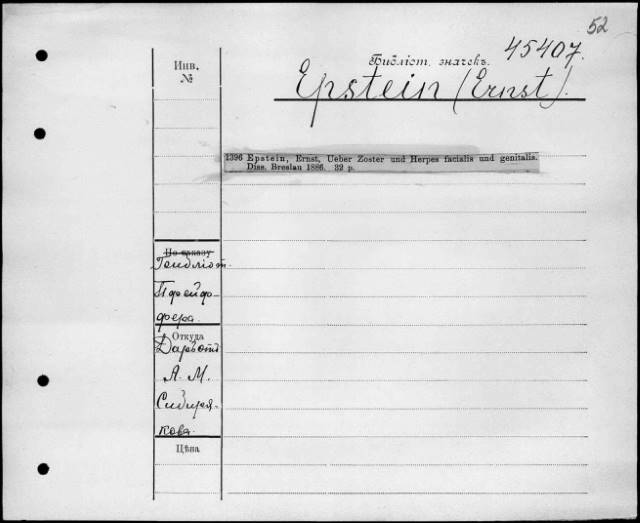 52
45407.
Библіот. значекъ.
Epstein (Ernst).
Инв.
№
1396 Epstein, Ernst, Ueber Zoster und Herpes facialis und genitalis.
Diss. Breslau 1886. 32 p.
По заказу
Пфейф-
фера.
Откуда
Даръ отъ
А. М.
Сибиря-
кова
Цѣна